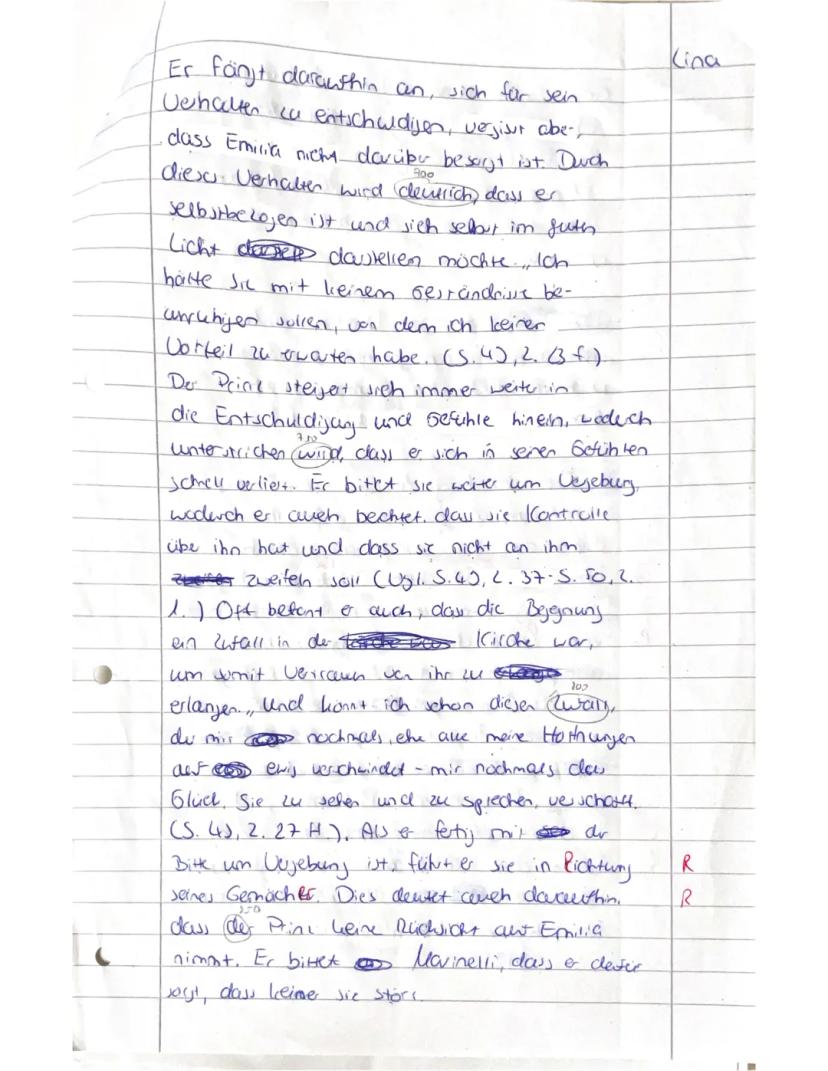 Lina
Er fängt daraufhin an, sich für sein
Verhalten zu entschuldigen, vergisst aber,
dass Emilia nicht darüber besorgt ist. Durch
700
dieses Verhalten wird deutlich, dass er
selbstbezogen ist und sich selbst im guten
Licht darstellen möchte. „Ich
hätte Sie mit keinem Geständnisse be-
unruhigen sollen, von dem ich keinen
Vorteil zu erwarten habe. (S. 49, Z. 13 f.).
Der Prinz steigert sich immer weiter in
die Entschuldigung und Gefühle hinein, wodurch
750
unterstrichen wird, dass er sich in seinen Gefühlen
schnell verliert. Er bittet sie weiter um Vergebung,
wodurch er auch, dass sie Kontrolle
über ihn hat und dass sie nicht an ihm
zweifeln soll (Vgl. S. 49, Z. 37- S. 50, Z.
1.) Oft betont er auch, dass die Begegnung
ein Zufall in der Kirche war,
um somit Vertrauen von ihr zu
800
erlangen. „Und könnt ich schon diesen Zufall,
der mir nochmals, ehe alle meine Hoffnungen
auf ewig verschwindet - mir nochmals das
Glück, Sie zu sehen und zu sprechen, verschafft.
(S. 49, Z. 27 ff.). Als er fertig mit der
Bitte um Vergebung ist, führt er sie in Richtung R
seines Gemaches. Dies deutet auch daraufhin, R
850
dass der Prinz keine Rücksicht auf Emilia
nimmt. Er bittet Marinelli, dass er dafür
sorgt, dass keiner sie stört.